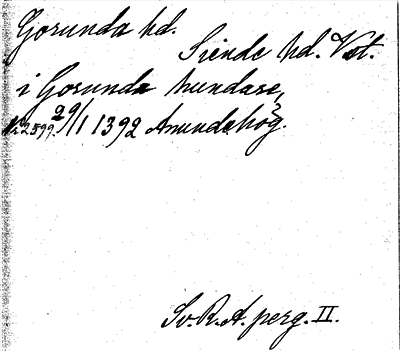 Gorunda hd.
Siende hd. Vst.
i Gorunda hundare,
nr 2599. 29/1 1392 Anundehög.
Sv. R. A. perg. II.